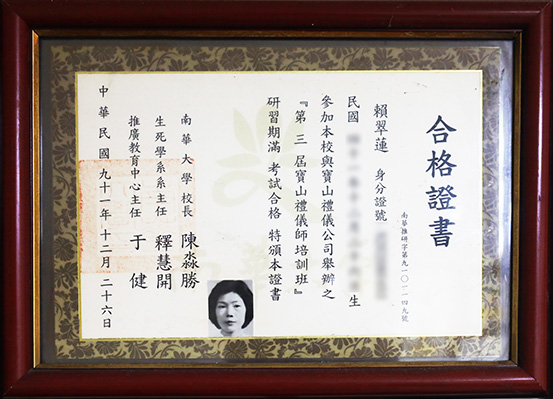 合格證書
南華推研字第九一〇一一四九號
賴翠蓮 身分證號
民國 生
參加本校與寶山禮儀公司舉辦之
『第三屆寶山禮儀師培訓班』
研習期滿 考試合格 特頒本證書
南華大學校長 陳淼勝
生死學系系主任 釋慧開
推廣教育中心主任 于健
中華民國九十一年十二月二十六日